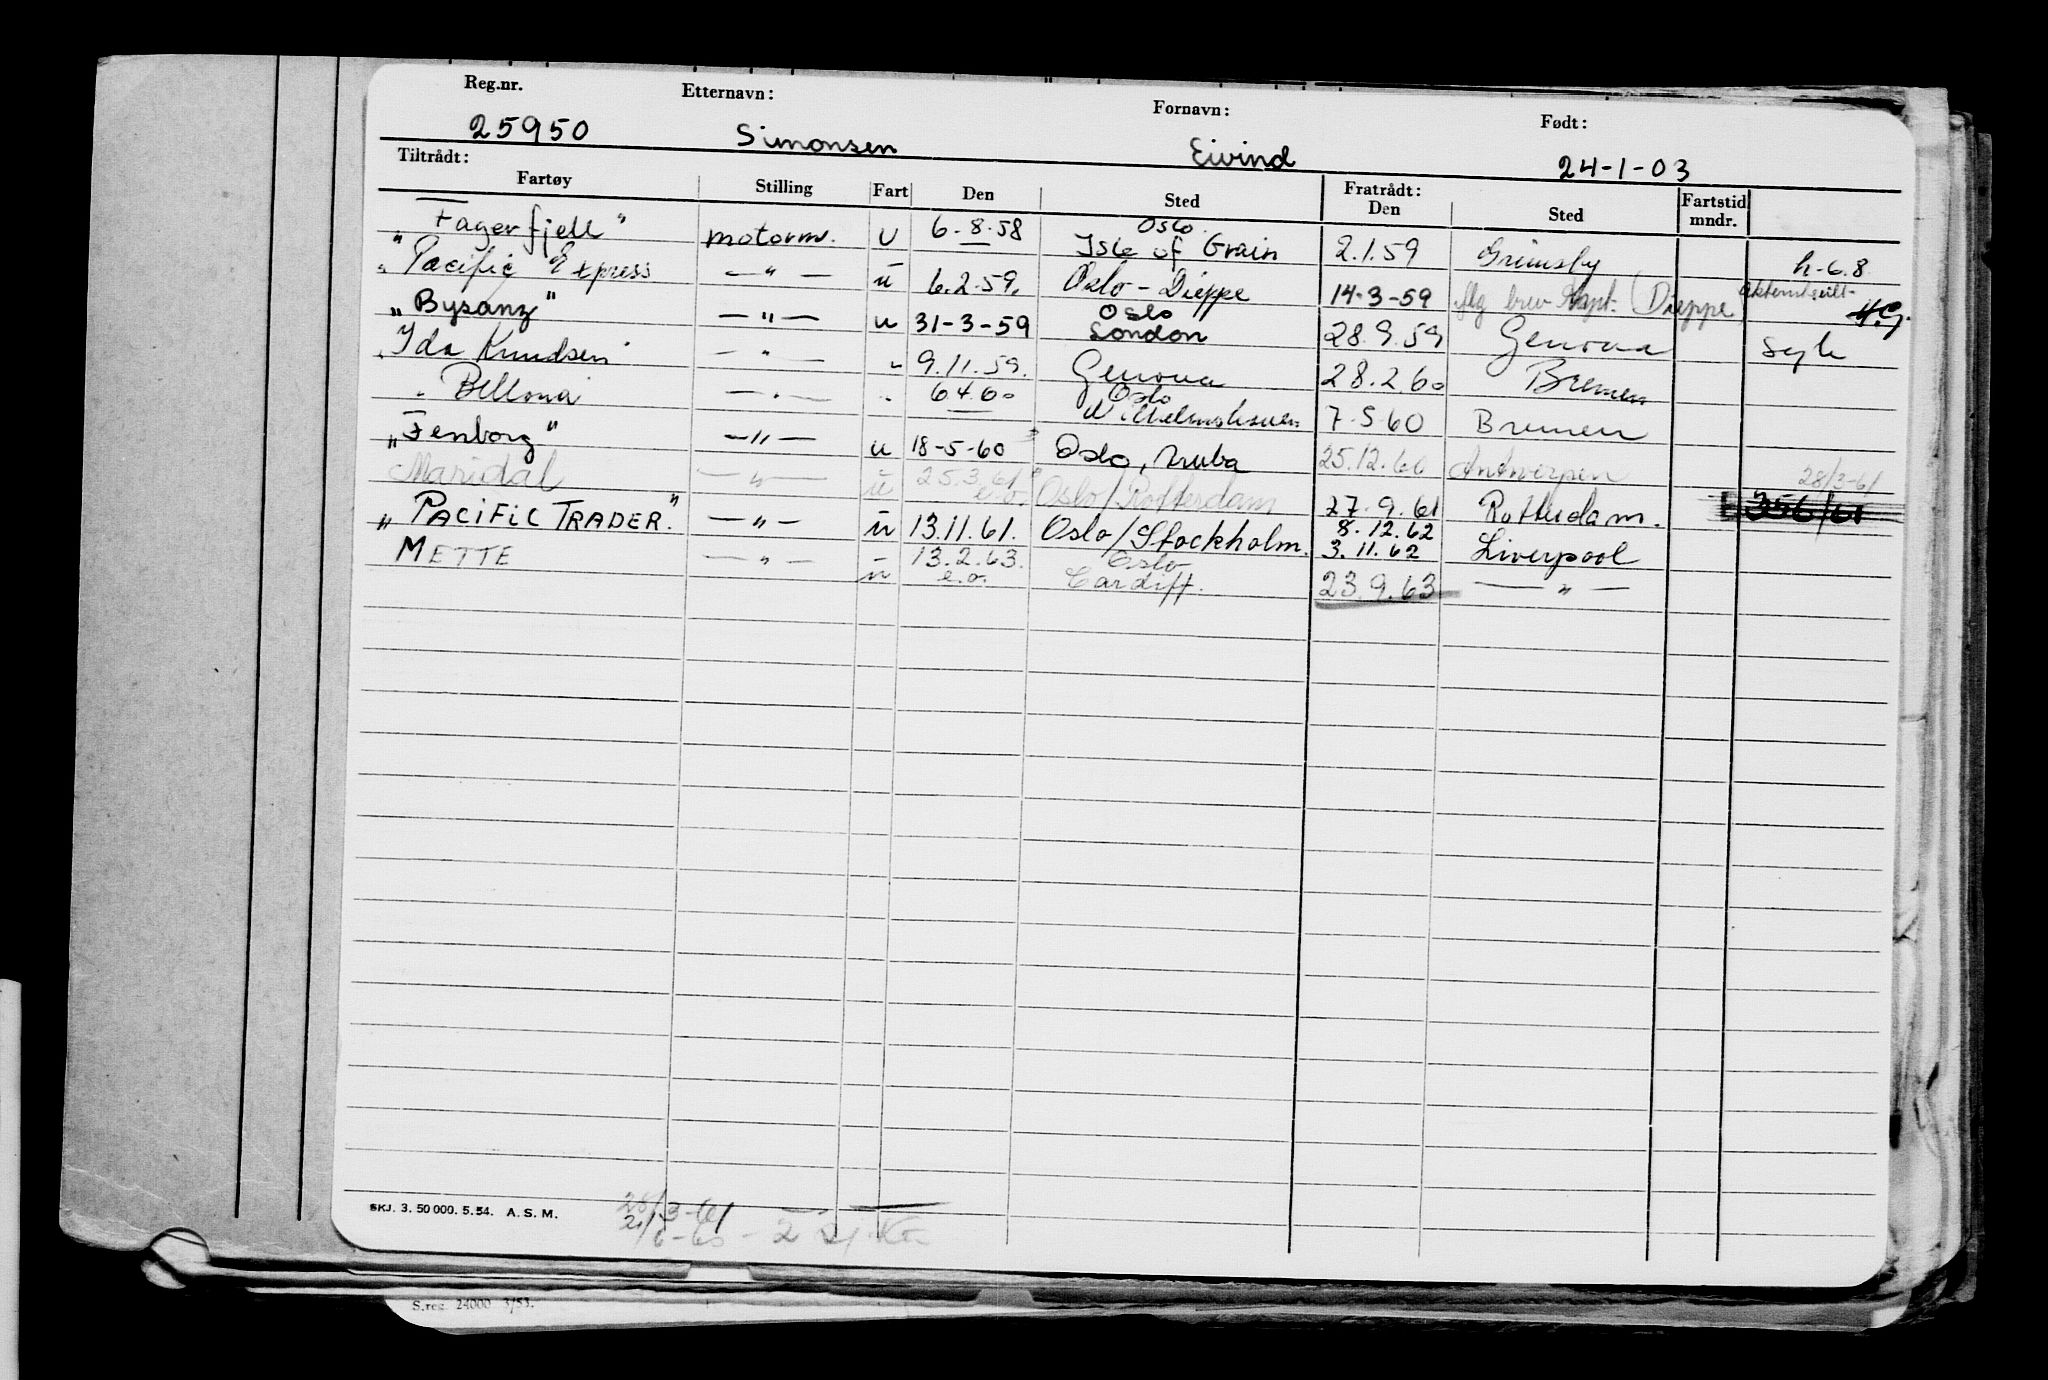 Reg.nr. Etternavn: Fornavn: Født:
25950 Simonsen Eivind 24-1-03
Tiltrådt: Fratrådt:
Fartøy Stilling Fart Den Sted Den Sted Fartstid mndr.
"Fagerfjell" motorm. U 6-8-58 Oslo. Isle of Grain 2.1.59 Grimsby h-6.8
"Pacific Express —"— u 6.2.59. Oslo-Dieppe 14-3-59 flg brev Kapt. (Dieppe
"Bysanz" —"— u 31-3-59 Oslo London 28.9.59 Genova syk
"Ida Knudsen" —"— " 9.11.59. Genova 28.2.60 Bremen
" Bellona —"— " 6460 Oslo Wilhelmshaven 7-5-60 Bremen
"Fenborg" —"— u 18-5-60 Oslo, Aruba 25.12.60 Antwerpen
Maridal —"— u 25.3.61 e.o. Oslo/Rotterdam 27.9.61 Rotterdam. 28/3-61 356/61
"PACIFIC TRADER." —"— u 13.11.61. Oslo/Stockholm. 8.12.62 3.11.62 Liverpool
METTE —"— u 13.2.63. e.o. Oslo Cardiff. 23.9.63 —"—
SKJ. 3. 50 000. 5. 54. A. S. M. 28/3-61
S.reg. 24000 3/53.